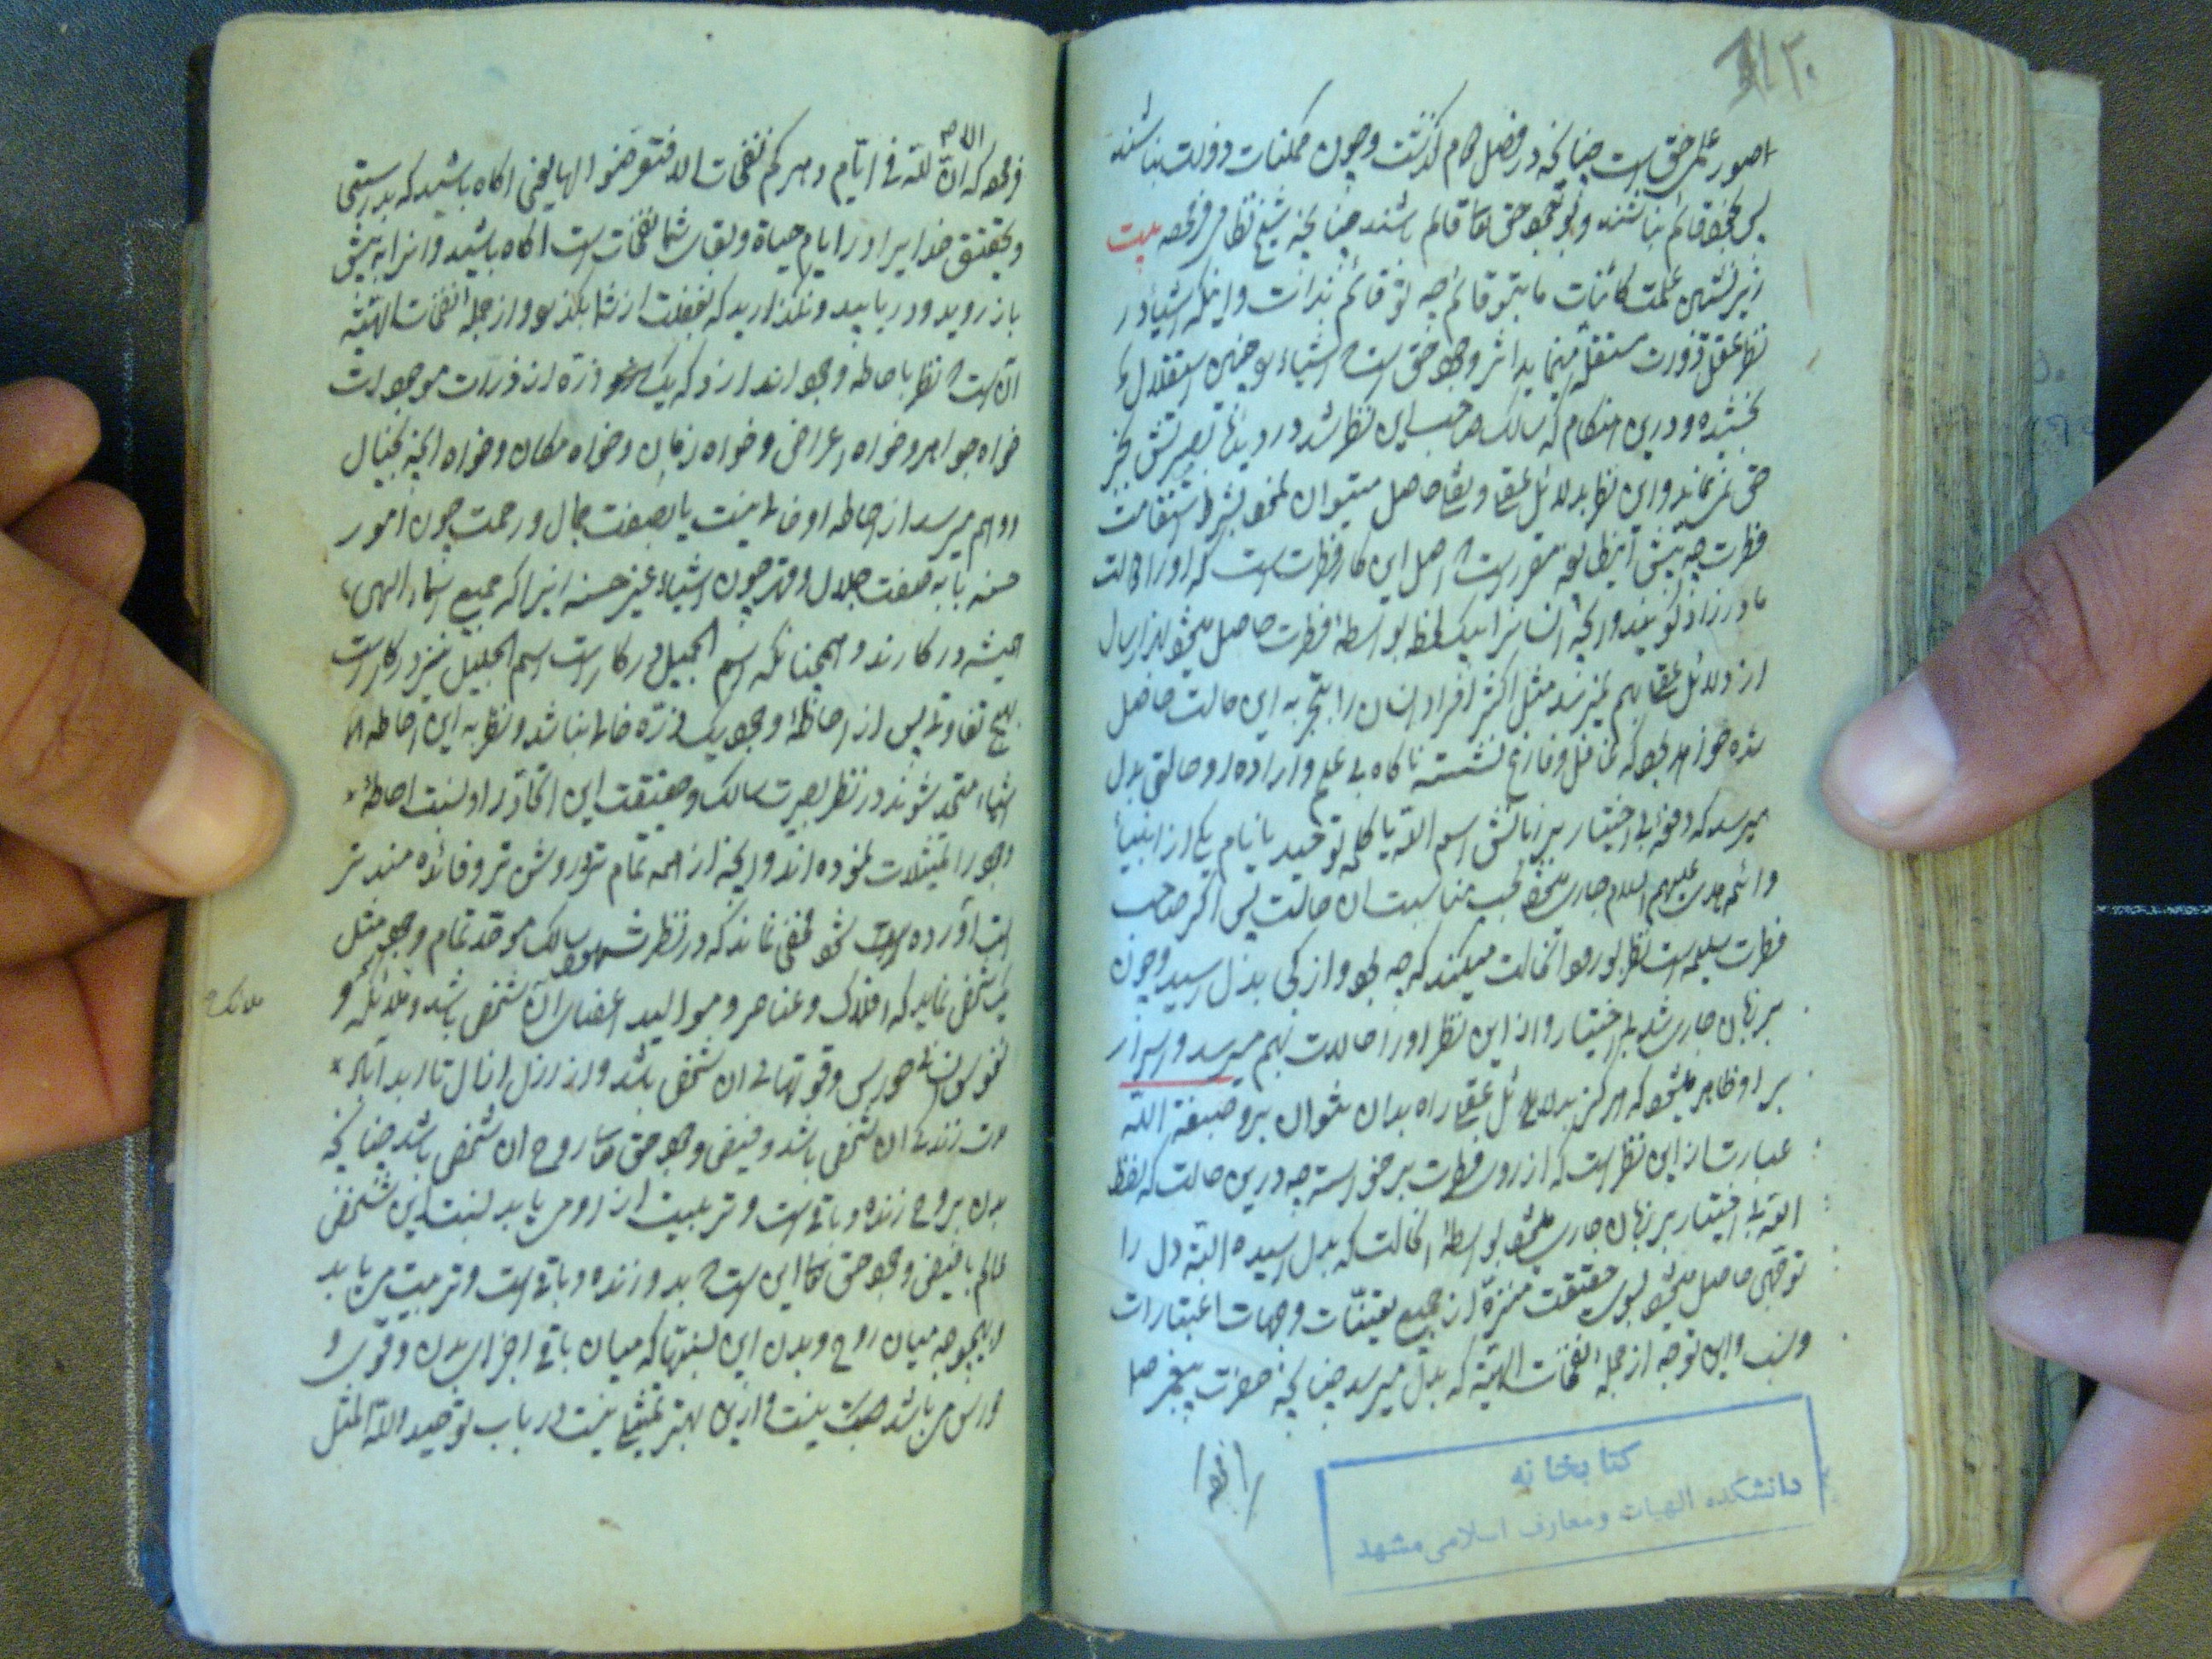 ۱۲۰
صور علمی حق است چنانکه در فصل کلام گذشت و چون ممکنات دولت نباشند
پس بخود قائم نباشند و بوجود حق تعا قائم باشند چنانچه شیخ نظامی فرموده بیت
زیرنشین علمت کائنات ما بتو قائم چو تو قائم بذات و اینکه اشیاء در
نظر عقل بصورت مستقل مینماید اثر وجود حق است که اشیاء بوجهی استقلال
بخشیده و درین هنگام که سالک صاحب این نظر شد در دیدهٔ بصیرتش بجز
حق نمی‌نماید و این نظر بدلائل عقلی و نقلی حاصل میتوان نمود بشرط استقامت
فطرت چه پیش اینطایفه مقرر است که اصل این کار فطرت است که او را حالت
مادرزاد گویند و آنچه انسانرا بیک لحظه بواسطهٔ فطرت حاصل میشود هزار سال
از دلائل عقلی بهم نمیرسد مثل اکثر افراد انسان را بتجربه این حالت حاصل
شده خواهد بود که غافل و فارغ نشسته ناگاه بی علم و اراده او حالتی بدل
میرسد که دفعة بی اختیار بر زبانش اسم الله یا کلمه توحید یا نام یکی از انبیاء
و ائمه هدی علیهم السلام جاری میشود بحسب مناسبت آن حالت پس اگر صاحب
فطرت سلیمه است نظر بورود آنحالت میکند که چه بود و از کی بدل رسید و چون
بر زبان جاری شد بی اختیار و از این نظر او را حالات بهم میرسد و اسرار
بر او ظاهر میشود که هرگز بدلائل عقلی راه بدان نتوان برد صبغة الله
عبارت از این نظر است که از روی فطرت برخواسته چه درین حالت که لفظ
الله بی اختیار بر زبان جاری میشود بواسطهٔ آنحالت که بدل رسیده البته دل را
توجهی حاصل میشود بسوی حقیقت منزه از جمیع تعینات و جهات اعتبارات
و نسب و این توجه از جمله نفحات الهیه که بدل میرسد چنانچه حضرت پیغمبر صلی
فرمود
کتابخانه
دانشکده الهیات و معارف اسلامی مشهد
الله
فرموده که ان لله فی ایام دهرکم نفحات الا فتعرضوا لها یعنی آگاه باشید که بدرستی
و بتحقیق خدایرا در ایام حیاة و بقای شما نفحات است آگاه باشید و آنرا به پیش
باز روید و دریابید و نگذارید که بغفلت از شما بگذرد و از جمله نفحات الهیه
آن است که نظر باحاطه وجود اندازد که یک ذره از ذرات موجودات
خواه جواهر و خواه اعراض و خواه زمان و خواه مکان و خواه آنچه بخیال
و وهم میرسد از احاطه او خالی نیست یا بصفت جمال و رحمت چون امور
حسنه یا به صفت جلال و قهر چون اشیاء غیر حسنه زیرا که جمیع اسماء الهی
همیشه در کارند و همچنانکه اسم الجمیل در کار است اسم الجلیل نیز در کار است
بهیچ تفاوت پس از احاطهٔ وجود یک ذره خالی نباشد و نظر به این احاطه
اشیاء متحد شوند در نظر بصیرت سالک و حقیقت این اتحاد را و نسبت احاطهٔ
وجود را تمثیلات نموده‌اند و آنچه از همه تمام تر و روشن تر و فائده مند تر
است آورده است بشنو مخفی نماند که در نظر شهود سالک موحد تمام وجود مثل
یک شخص نماید که افلاک و عناصر و موالید اعضای آن شخص باشد و ملائکه و
ملائکه
نفوس انسانی حواس و قوتهای آن شخص باشد و از ازل ازال تا ابد آباد
مدت زندگی آن شخص باشد و فیض وجود حق تعا روح آن شخص باشد چنانچه
بدن بروح زنده و باقی است و تربیت از روح می یابد نسبت این شخص
عالم با فیض وجود حق تعا این است که بدو زنده و باقی است و تربیت می یابد
و بهیچوجه میان روح و بدن این نسبتها که میان باقی اجزای بدن و قوی و
حواس می باشد نیست و ازین بهتر تمثیلی نیست در باب توحید و لله المثل